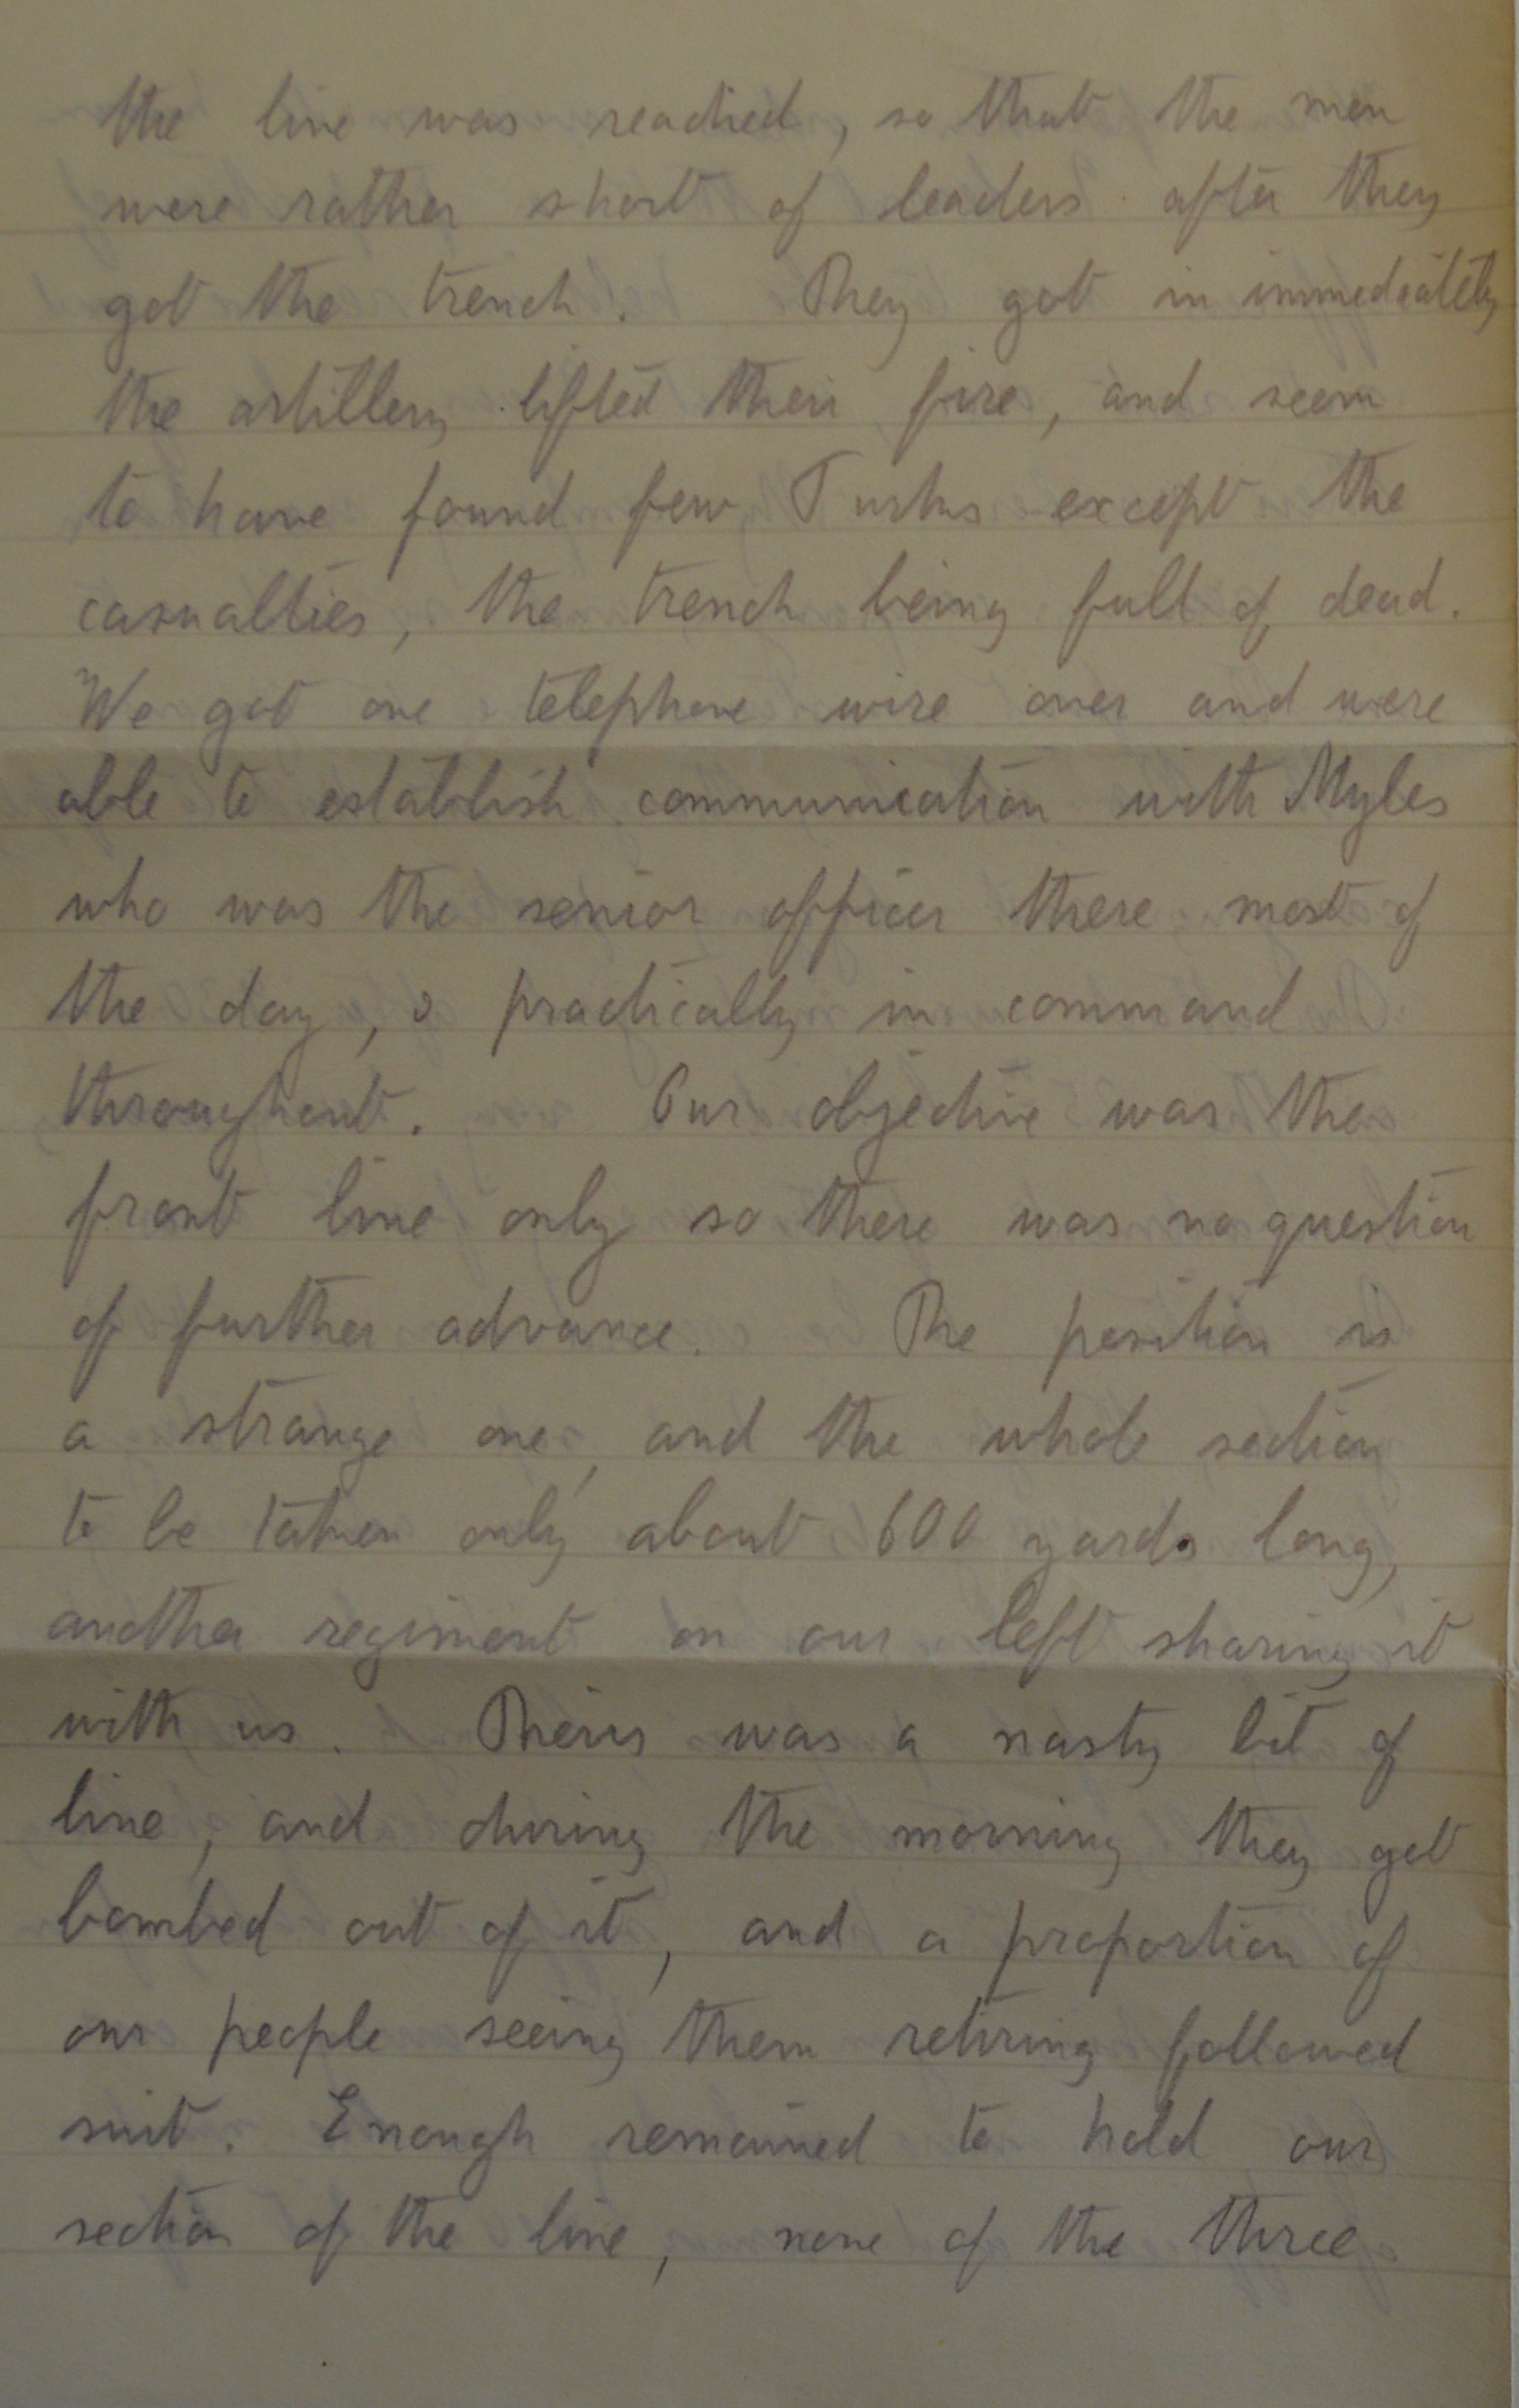 the line was reached, so that the men
were rather short of leaders after they
got the trench. They got in immediately
the artillery lifted their fire, and seem
to have found few Turks except the
casualties, the trench being full of dead.
We got one telephone wire over and were
able to establish communication with Myles
who was the senior officer there most of
the day, & practically in command
throughout. Our objective was the
front line only so there was no question
of further advance. The position is
a strange one, and the whole section
to be taken only about 600 yards long,
another regiment on our left sharing it
with us. Theirs was a nasty bit of
line, and during the morning they got
bombed out of it, and a proportion of
our people seeing them retiring followed
suit. Enough remained to hold our
section of the line, none of the three